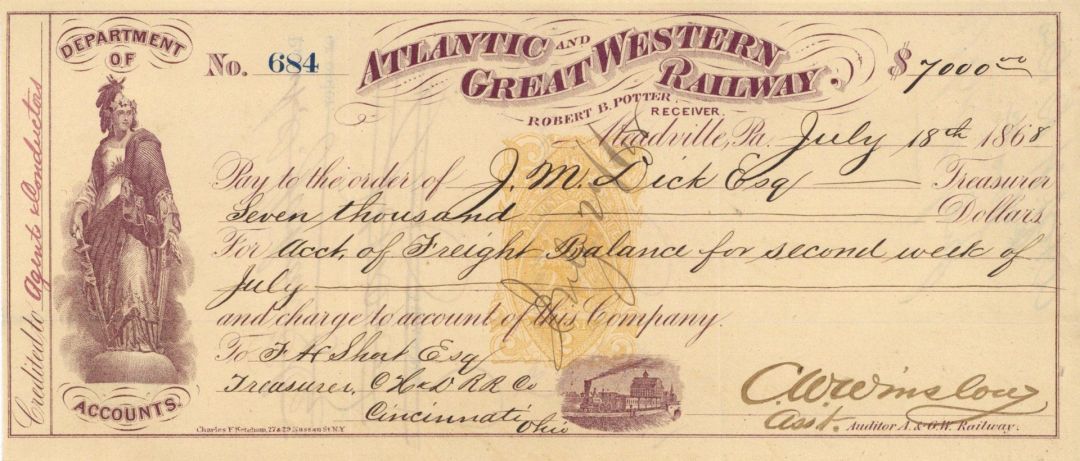 DEPARTMENT
OF
ACCOUNTS.
Credited to Agents & Conductors
No. 684
ATLANTIC AND
GREAT WESTERN
RAILWAY.
ROBERT B. POTTER,
RECEIVER.
$7000 00
Meadville, Pa. July 18th 1868
Pay to the order of J. M. Dick Esq Treasurer
Seven thousand Dollars
For Acct. of Freight Balance for second week of
July
and charge to account of this Company.
To F H Short Esq
Treasurer, C H & D R R Co
Cincinnati,
Ohio
C. W. Winslow
Asst. Auditor A. & G. W. Railway.
Charles F. Ketcham, 27 & 29 Nassau St N.Y.